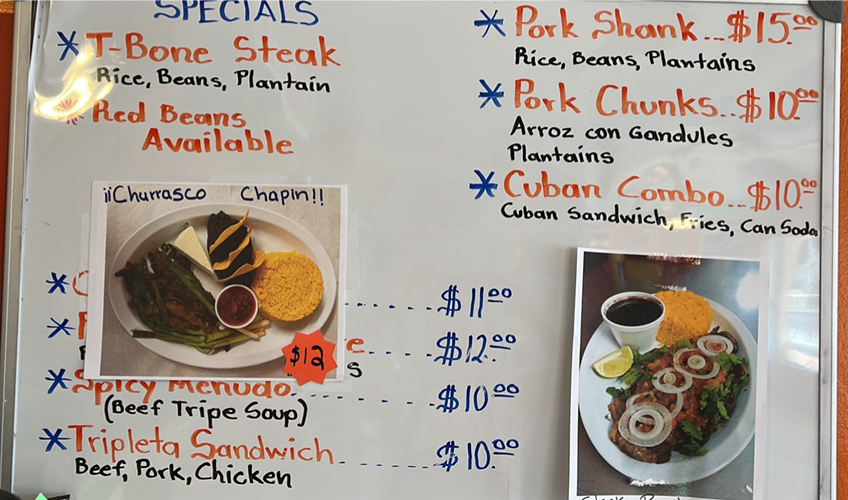 SPECIALS
* T-Bone Steak
Rice, Beans, Plantain
* Red Beans
Available
¡¡Churrasco Chapin!!
$12
$11.00
$12.00
* Spicy Menudo $10.00
(Beef Tripe Soup)
* Tripleta Sandwich $10.00
Beef, Pork, Chicken
* Pork Shank...$15.00
Rice, Beans, Plantains
* Pork Chunks..$10.00
Arroz con Gandules
Plantains
* Cuban Combo...$10.00
Cuban Sandwich, Fries, Can Soda